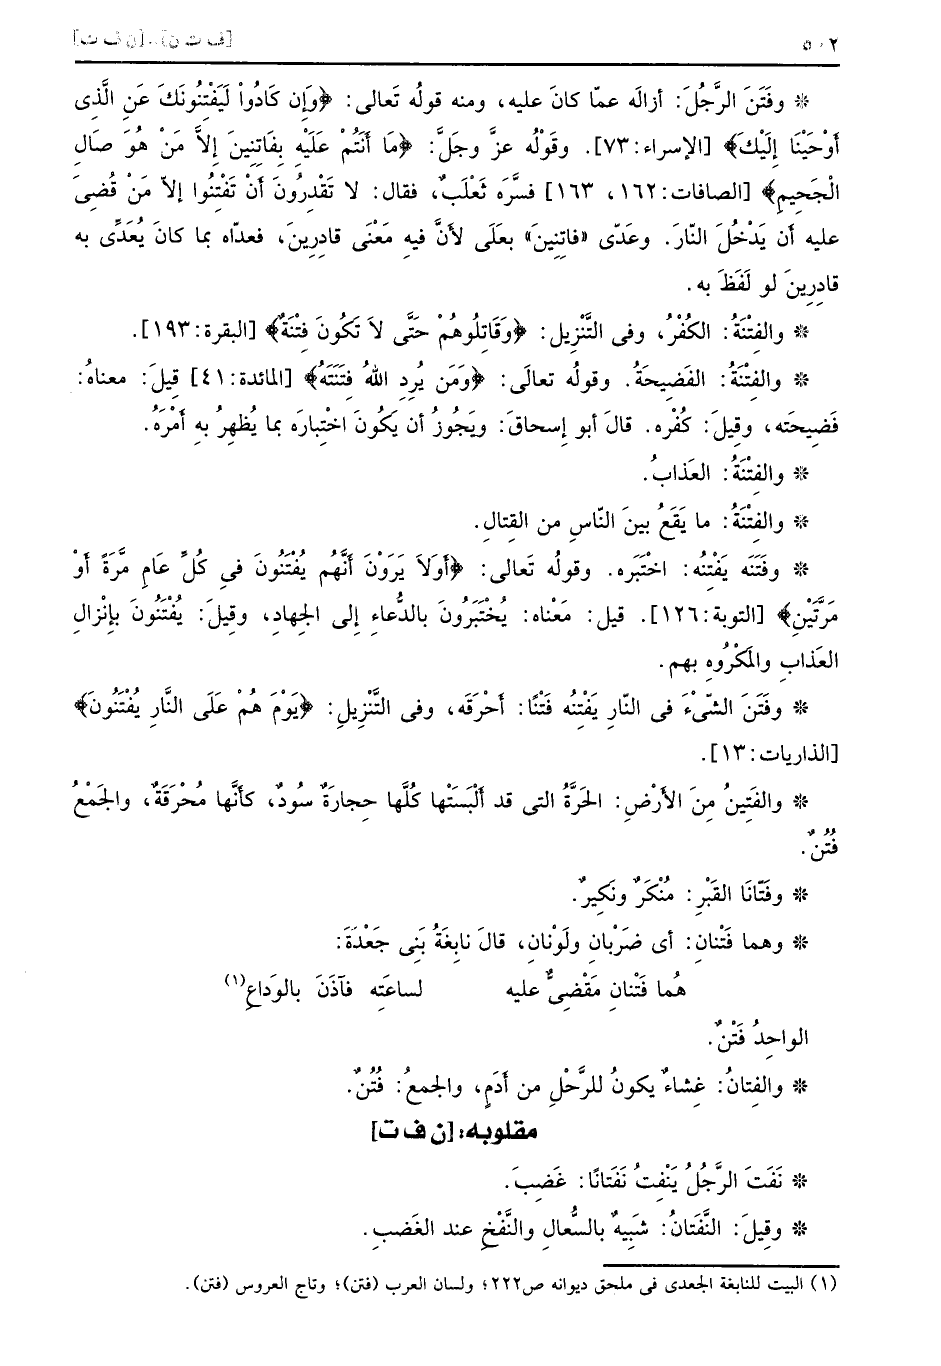 ٥٠٢ [ف ت ن]..[ن ف ت]
* وفَتَنَ الرَّجُلَ: أزالَه عمّا كانَ عليه، ومنه قولُه تَعالى: ﴿وَإِن كَادُواْ لَيَفْتِنُونَكَ عَنِ الَّذِى
أَوْحَيْنَا إِلَيْكَ﴾ [الإسراء: ٧٣]. وقَوْلُه عزَّ وجَلَّ: ﴿مَا أَنتُمْ عَلَيْهِ بِفَاتِنِينَ إِلاَّ مَنْ هُوَ صَالِ
الْجَحِيمِ﴾ [الصافات: ١٦٢، ١٦٣] فسَّرَه ثَعْلَبٌ، فقال: لا تَقْدِرُونَ أَنْ تَفْتِنُوا إلاّ مَنْ قُضِىَ
عليه أن يَدْخُلَ النّارَ. وعَدّى «فاتِنِينَ» بعَلَى لأنَّ فيه مَعْنَى قادِرِينَ، فعدّاه بما كانَ يُعَدَّى به
قادِرِينَ لو لَفَظَ به.
* والفِتْنَةُ: الكُفْرُ، وفى التَّنْزِيل: ﴿وَقَاتِلُوهُمْ حَتَّى لاَ تَكُونَ فِتْنَةٌ﴾ [البقرة: ١٩٣].
* والفِتْنَةُ: الفَضِيحَةُ. وقولُه تعالَى: ﴿وَمَن يُرِدِ اللهُ فِتْنَتَهُ﴾ [المائدة: ٤١] قِيلَ: معناهُ:
فَضِيحَته، وقِيلَ: كُفْره. قالَ أبو إسحاقَ: ويَجُوزُ أن يَكُونَ اخْتِبارَه بما يُظْهِرُ بِه أَمْرَهُ.
* والفِتْنَةُ: العَذابُ.
* والفِتْنَةُ: ما يَقَعُ بينَ النّاسِ من القِتالِ.
* وفَتَنَه يَفْتِنُه: اخْتَبَره. وقولُه تَعالى: ﴿أَوَلاَ يَرَوْنَ أَنَّهُم يُفْتَنُونَ فِى كُلِّ عَامٍ مَّرَةً أَوْ
مَرَّتَيْنِ﴾ [التوبة: ١٢٦]. قيل: مَعْناه: يُخْتَبَرُونَ بالدُّعاءِ إلى الجهادِ، وقِيلَ: يُفْتَنُونَ بإنْزالِ
العَذابِ والمَكْرُوهِ بهم.
* وفَتَنَ الشّىْءَ فى النّارِ يَفْتِنُه فَتْنًا: أحْرَقَه، وفى التَّنْزِيلِ: ﴿يَوْمَ هُمْ عَلَى النَّارِ يُفْتَنُونَ﴾
[الذاريات: ١٣].
* والفَتِينُ مِنَ الأَرْضِ: الحَرَّةُ التى قد أَلْبَسَتْها كُلَّها حِجارَةٌ سُودٌ، كأنَّها مُحْرَقَةٌ، والجَمْعُ
فُتُنٌ.
* وفَتّانَا القَبْرِ: مُنْكَرٌ ونَكِيرٌ.
* وهما فَتْنان: أى ضَرْبانِ ولَوْنانِ، قالَ نابِغَةُ بَنِى جَعْدَةَ:
هُما فَتْنانِ مَقْضِىٌّ عليه لساعَتِه فآذَنَ بالوَداعِ(١)
الواحِدُ فَتْنٌ.
* والفِتانُ: غِشاءٌ يكونُ للرَّحْلِ من أَدَمٍ، والجمعُ: فُتُنٌ.
مقلوبه: [ن ف ت]
* نَفَتَ الرَّجُلُ يَنْفِتُ نَفَتَانًا: غَضِبَ.
* وقِيلَ: النَّفَتانُ: شَبِيهٌ بالسُّعالِ والنَّفْخِ عند الغَضبِ.
(١) البيت للنابغة الجعدى فى ملحق ديوانه ص٢٢٢؛ ولسان العرب (فتن)؛ وتاج العروس (فتن).